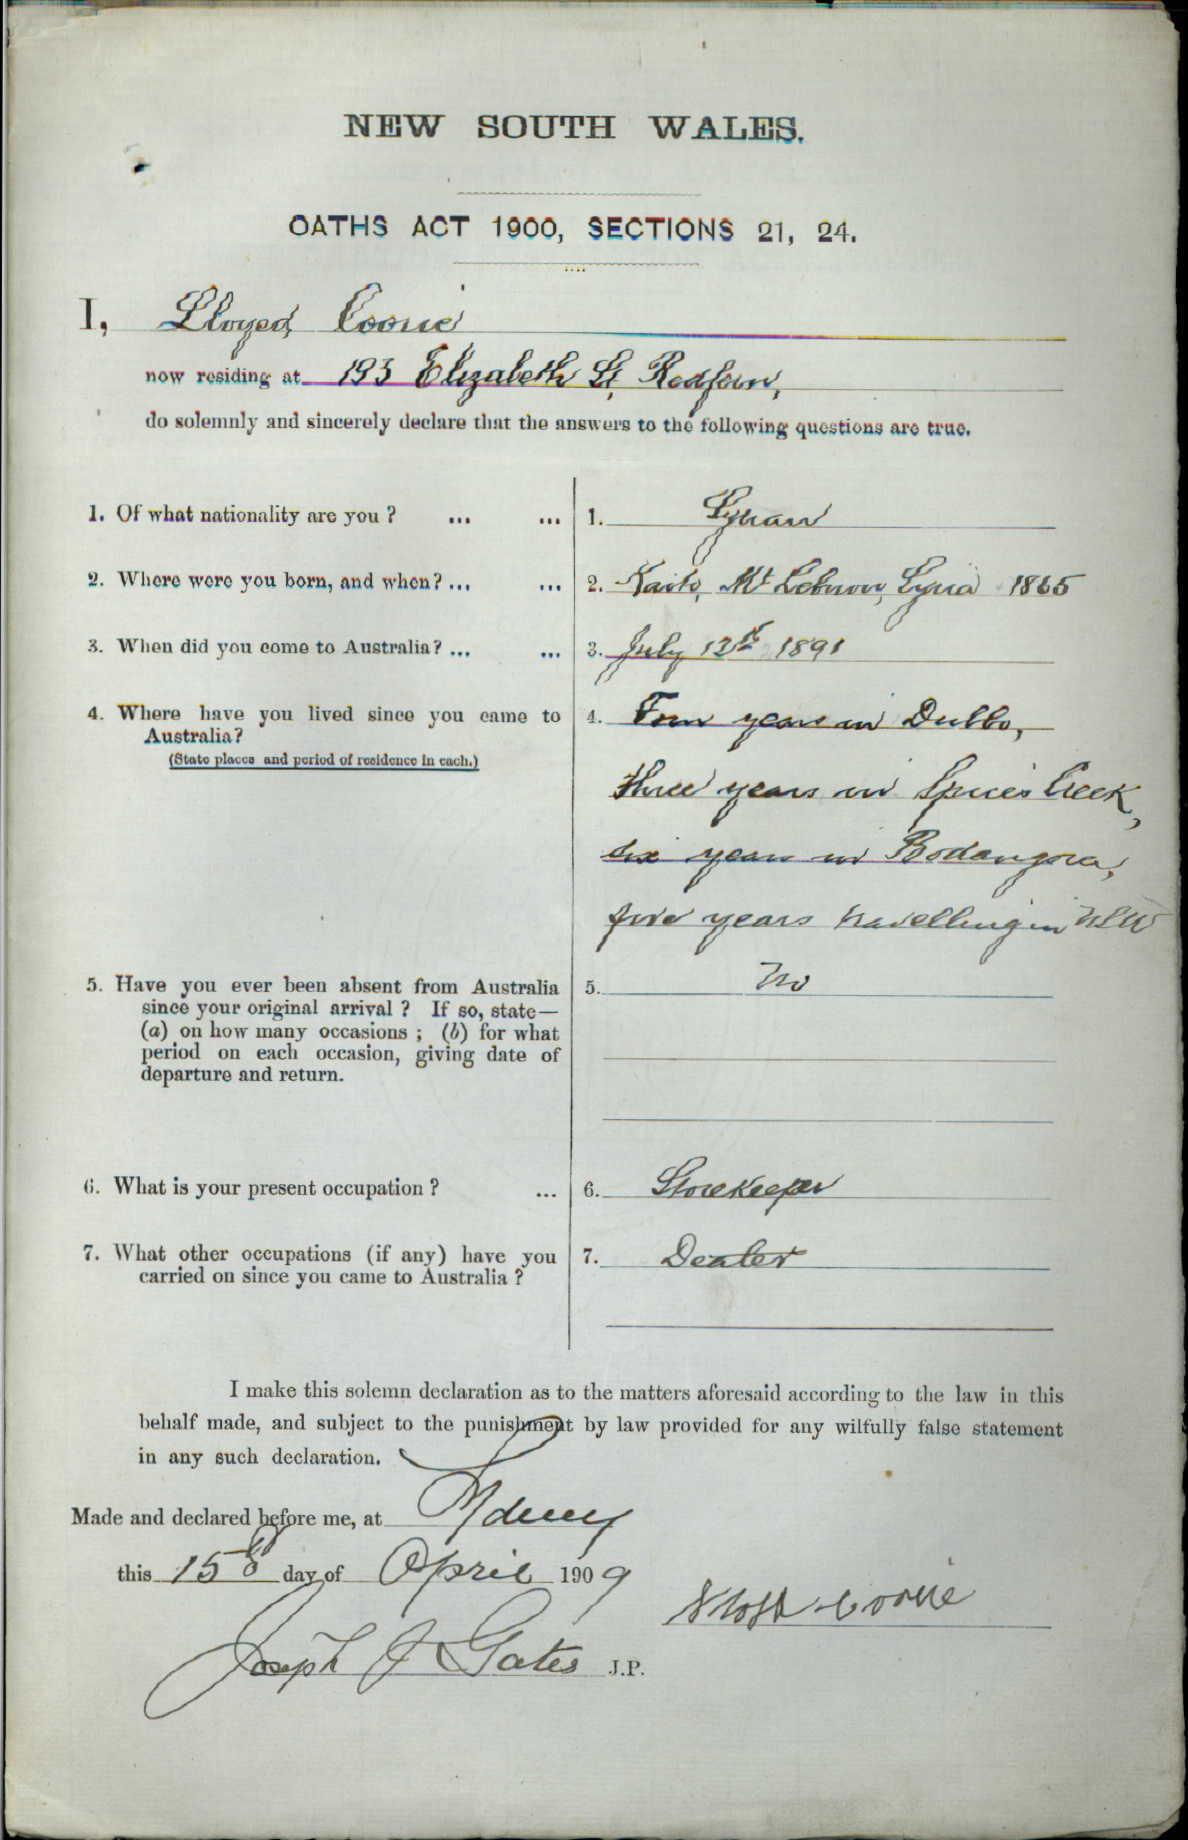 NEW SOUTH WALES.
OATHS ACT 1900, SECTIONS 21, 24.
I, Lloyed Coorie
now residing at 193 Elizabeth St, Redfern,
do solemnly and sincerely declare that the answers to the following questions are true.
1. Of what nationality are you ? ... ... 1. Syrian
2. Where were you born, and when? ... ... 2. Mt Lebnon, Syria 1865
3. When did you come to Australia? ... ... 3. July 12th 1891
4. Where have you lived since you came to 4. Four years in Dubbo,
Australia?
(State places and period of residence in each.)
three years in Spices Creek,
six years in Bodangora,
five years travelling in NSW
5. Have you ever been absent from Australia 5. No
since your original arrival ? If so, state—
(a) on how many occasions ; (b) for what
period on each occasion, giving date of
departure and return.
6. What is your present occupation ? ... 6. Storekeeper
7. What other occupations (if any) have you 7. Dealer
carried on since you came to Australia ?
I make this solemn declaration as to the matters aforesaid according to the law in this
behalf made, and subject to the punishment by law provided for any wilfully false statement
in any such declaration.
Made and declared before me, at Sydney
this 15th day of April 1909
Coorie
Joseph J Gates J.P.